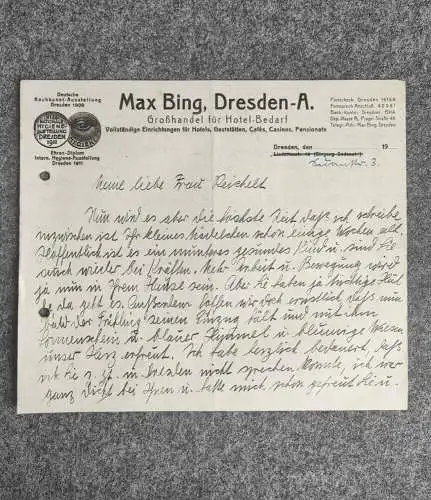 Deutsche
Kochkunst-Ausstellung
Dresden 1909
INTER.
HYGIENE-
AUSSTELLUNG
DRESDEN
1911
Ehren-Diplom
Intern. Hygiene-Ausstellung
Dresden 1911
Max Bing, Dresden-A.
Großhandel für Hotel-Bedarf
Vollständige Einrichtungen für Hotels, Gaststätten, Cafés, Casinos, Pensionate
Postscheck: Dresden
Fernsprech-Anschluß
Bank-Konto: Dresdner Bank
Dep.-Kasse B, Prager Straße
Telegr.-Adr.: Max Bing, Dresden
Dresden, den 19
3.
Meine liebe Frau Reichelt
Nun wird es aber die höchste Zeit daß ich schreibe
inzwischen ist Ihr kleines Mädelchen schon einige Wochen alt.
Hoffentlich ist es ein munteres gesundes Kind u. sind Sie
auch wieder bei Kräften. Mehr Arbeit u. Bewegung wird
ja nun in Ihrem Hause sein. Aber Sie haben ja tüchtige Hül
fe da geht es. Außerdem hoffen wir doch ernstlich daß nun
bald der Frühling seinen Einzug hält und mit ihm
Sonnenschein u. blauer Himmel u. blumige Wiesen
unser Herz erfreut. Ich habe herzlich bedauert, daß
ich Sie z. Zt. in Dresden nicht sprechen konnte, ich war
ganz dicht bei Ihnen u. hatte mich schon gefreut Sie u.